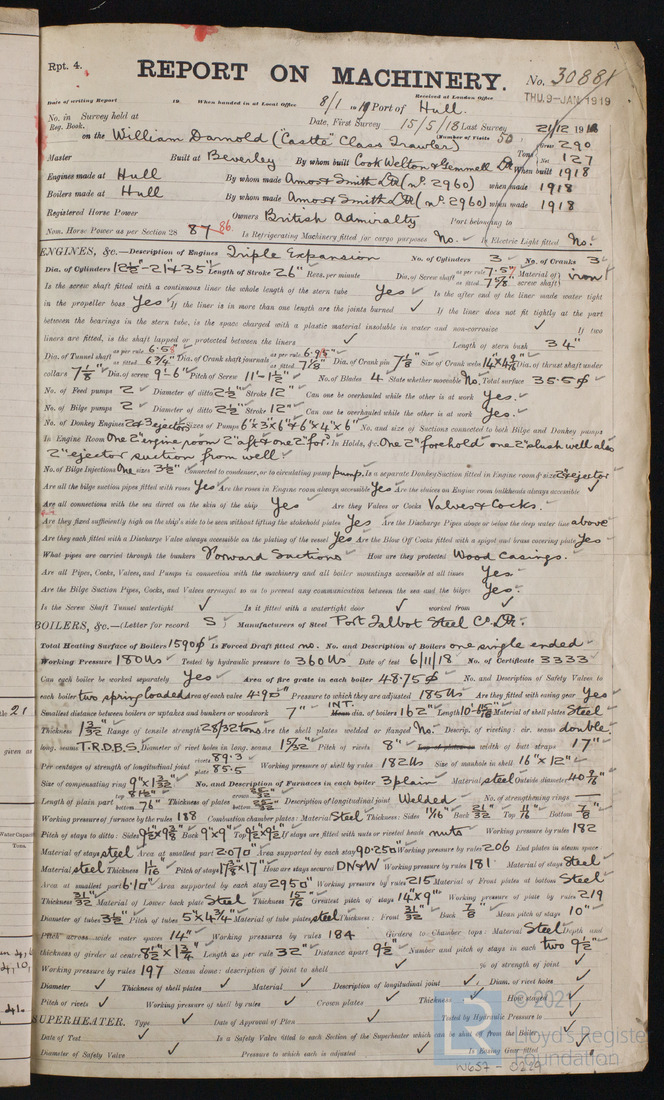 Rpt. 4.
REPORT ON MACHINERY.
No. 30881
THU. 9-JAN 1919
Date of writing Report 19 When handed in at Local Office 8/1 19 Port of Hull.
Received at London Office
No. in Reg. Book. Survey held at Date, First Survey 15/5/18 Last Survey 21/12 1918
(Number of Visits 50)
on the William Darnold ("Castle" Class Trawler) Tons Gross 290 Net 127
Master Built at Beverley By whom built Cook Welton & Gemmell Ltd When built 1918
Engines made at Hull By whom made Amos & Smith Ltd (No. 2960) when made 1918
Boilers made at Hull By whom made Amos & Smith Ltd (No. 2960) when made 1918
Registered Horse Power Owners British Admiralty Port belonging to
Nom. Horse Power as per Section 28 87 86. Is Refrigerating Machinery fitted for cargo purposes No. Is Electric Light fitted No.
ENGINES, &c.—Description of Engines Triple Expansion No. of Cylinders 3 No. of Cranks 3
Dia. of Cylinders 12½"-21"&35" Length of Stroke 26" Revs. per minute Dia. of Screw shaft as per rule 7.57" as fitted 7⅝" Material of screw shaft iron
Is the screw shaft fitted with a continuous liner the whole length of the stern tube Yes Is the after end of the liner made water tight
in the propeller boss Yes If the liner is in more than one length are the joints burned ✓ If the liner does not fit tightly at the part
between the bearings in the stern tube, is the space charged with a plastic material insoluble in water and non-corrosive ✓ If two
liners are fitted, is the shaft lapped or protected between the liners ✓ Length of stern bush 34"
Dia. of Tunnel shaft as per rule 6.58" as fitted 6¾" Dia. of Crank shaft journals as per rule 6.98" as fitted 7⅛" Dia. of Crank pin 7⅛" Size of Crank webs Dia. of thrust shaft under
collars 7⅛" Dia. of screw 9'-6" Pitch of Screw 11'-1½" No. of Blades 4 State whether moveable No. Total surface 35.5ϕ
No. of Feed pumps 2 Diameter of ditto 2½" Stroke 12" Can one be overhauled while the other is at work Yes.
No. of Bilge pumps 2 Diameter of ditto 2½" Stroke 12" Can one be overhauled while the other is at work Yes.
No. of Donkey Engines 2 & 3 ejectors Sizes of Pumps 6"x3"x6" & 6"x4"x6" No. and size of Suctions connected to both Bilge and Donkey pumps
In Engine Room One 2" engine room 2" aft & one 2" for'd. In Holds, &c. One 2" forehold one 2" slush well also
2" ejector suction from well.
No. of Bilge Injections One sizes 3½" Connected to condenser, or to circulating pump pump. Is a separate Donkey Suction fitted in Engine room & size 2" ejector
Are all the bilge suction pipes fitted with roses Yes Are the roses in Engine room always accessible Yes Are the sluices on Engine room bulkheads always accessible ✓
Are all connections with the sea direct on the skin of the ship Yes Are they Valves or Cocks Valves & Cocks.
Are they fixed sufficiently high on the ship's side to be seen without lifting the stokehold plates Yes Are the Discharge Pipes above or below the deep water line above
Are they each fitted with a Discharge Valve always accessible on the plating of the vessel Yes Are the Blow Off Cocks fitted with a spigot and brass covering plate Yes
What pipes are carried through the bunkers Forward Suctions How are they protected Wood Casings.
Are all Pipes, Cocks, Valves, and Pumps in connection with the machinery and all boiler mountings accessible at all times Yes
Are the Bilge Suction Pipes, Cocks, and Valves arranged so as to prevent any communication between the sea and the bilges Yes.
Is the Screw Shaft Tunnel watertight ✓ Is it fitted with a watertight door ✓ worked from ✓
BOILERS, &c.—(Letter for record S) Manufacturers of Steel Port Talbot Steel Co. Ltd.
Total Heating Surface of Boilers 1590ϕ Is Forced Draft fitted no. No. and Description of Boilers one single ended
Working Pressure 180 lbs Tested by hydraulic pressure to 360 lbs Date of test 6/11/18 No. of Certificate 3333
Can each boiler be worked separately Yes Area of fire grate in each boiler 48.75ϕ No. and Description of Safety Valves to
each boiler two spring loaded Area of each valve 4.90" Pressure to which they are adjusted 185 lbs Are they fitted with easing gear Yes
Smallest distance between boilers or uptakes and bunkers or woodwork 7" INT. dia. of boilers 162" Length Material of shell plates Steel
Thickness 1 3/32" Range of tensile strength 28/32 tons Are the shell plates welded or flanged No. Descrip. of riveting: cir. seams double.
long. seams T.R.D.B.S. Diameter of rivet holes in long. seams 1 5/32" Pitch of rivets 8" width of butt straps 17"
Per centages of strength of longitudinal joint rivets 89.3 plate 85.5 Working pressure of shell by rules 182 lbs Size of manhole in shell 16"x12"
Size of compensating ring 9"x1 3/32" No. and Description of Furnaces in each boiler 3 plain Material steel Outside diameter
Length of plain part bottom 76" Thickness of plates Description of longitudinal joint Welded No. of strengthening rings
Working pressure of furnace by the rules 188 Combustion chamber plates: Material Steel Thickness: Sides 11/16" Back 21/32" Top 11/16" Bottom 7/8"
Pitch of stays to ditto: Sides Back 9"x9" Top If stays are fitted with nuts or riveted heads nuts Working pressure by rules 182
Material of stays steel Area at smallest part 2.070" Area supported by each stay Working pressure by rules 206 End plates in steam space
Material steel Thickness 1 1/16" Pitch of stays How are stays secured D.N&W Working pressure by rules 181 Material of stays Steel
Area at smallest part 6.10" Area supported by each stay 295" Working pressure by rules 215 Material of Front plates at bottom Steel
Thickness 31/32" Material of Lower back plate Steel Thickness 15/16" Greatest pitch of stays 14"x9" Working pressure of plate by rules 219
Diameter of tubes 3½" Pitch of tubes 5"x4¾" Material of tube plates steel Thickness: Front 31/32" Back 7/8" Mean pitch of stays 10"
Pitch across wide water spaces 14" Working pressures by rules 184 Girders to Chamber tops: Material Steel Depth and
thickness of girder at centre 8½"x1¾" Length as per rule 32" Distance apart 9½" Number and pitch of stays in each two 9½"
Working pressure by rules 197 Steam dome: description of joint to shell ✓ % of strength of joint ✓
Diameter ✓ Thickness of shell plates ✓ Material ✓ Description of longitudinal joint ✓ Diam. of rivet holes ✓
Pitch of rivets ✓ Working pressure of shell by rules ✓ Crown plates ✓ Thickness ✓ How stayed ✓
SUPERHEATER. Type ✓ Date of Approval of Plan ✓ Tested by Hydraulic Pressure to ✓
Date of Test ✓ Is a Safety Valve fitted to each Section of the Superheater which can be shut off from the Boiler ✓
Diameter of Safety Valve ✓ Pressure to which each is adjusted ✓ Is Easing Gear fitted ✓
© 2021
Lloyd's Register
Foundation
W657-0229